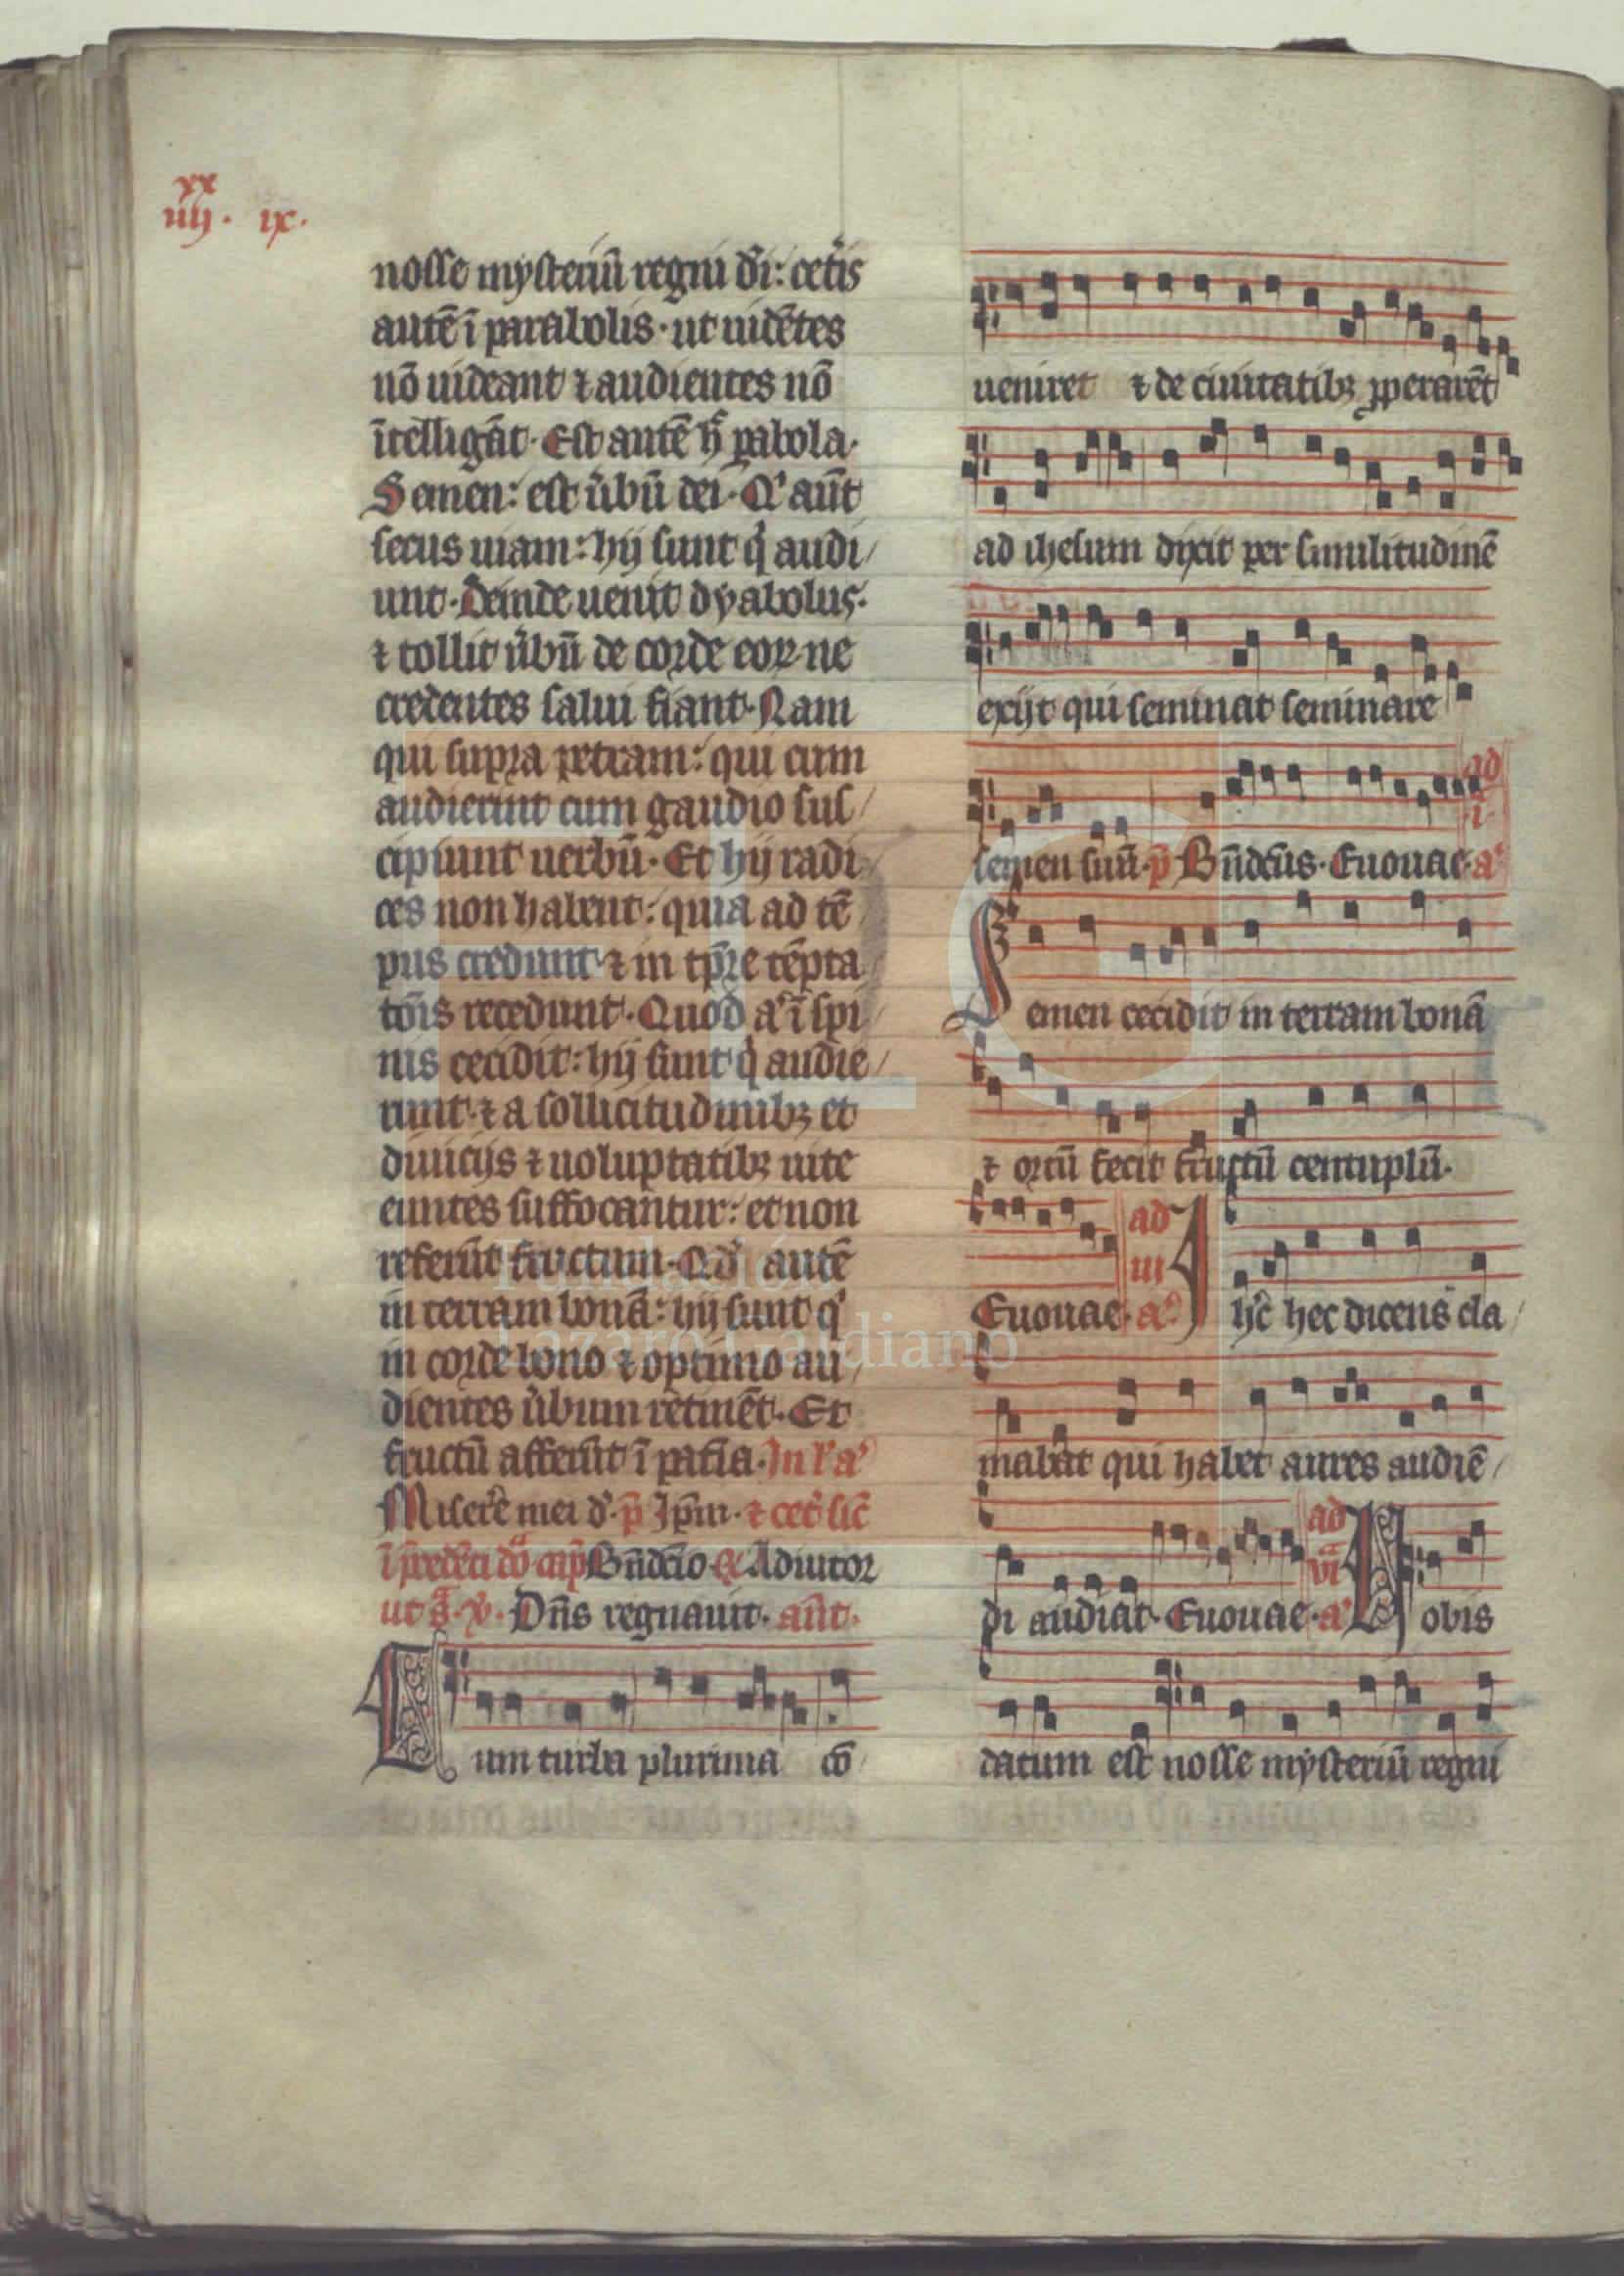 xx
iiij. ix.
nosse mysteriũ regni dĩ: cet̃is
autẽ ĩ parabolis. ut uidẽtes
nõ uideant ⁊ audientes nõ
ĩtelligãt. Est autẽ h̃ pabola.
Semen: est ũbũ dei. Qͥ aũt
secus uiam: hij sunt qͥ audi/
unt. Deinde uenit dyabolus.
⁊ tollit ũbũ de corde eoꝝ ne
credentes salui fiant. Nam
qui supra petram: qui cum
audierint cum gaudio sus/
cipiunt uerbũ. Et hij radi/
ces non habent: quia ad tẽ
pus credunt ⁊ in tp̃re tẽpta/
tõis recedunt. Quod aͭ ĩ spi/
nis cecidit: hij sunt qͥ audie/
runt. ⁊ a sollicitudinibꝫ et
diuicijs ⁊ uoluptatibꝫ uite
euntes suffocantur: et non
referũt fructum. Qd̃ autẽ
in terram bonã: hij sunt qͥ
in corde bono ⁊ optimo au/
dientes ũbum retinẽt. Et
fructũ afferũt ĩ patĩa. In
Miser̃e mei d̃. p̃ Ip̃m. ⁊ cet̃ sic̃
Bñdc̃io Adiutor
ut sͣ. Dñs regnauit. añt.
Cum turba plurima cõ/
ueniret ⁊ de ciuitatibꝫ ꝓperarẽt
ad ihesum dixit per similitudinẽ
exijt qui seminat seminare
ad
i
semen suũ. p̃ Bñdc̃us. Euouae. aͣ
Semen cecidit in terram bonã
⁊ ortũ fecit fructũ centuplũ.
ad
iii
Euouae. aͣ Ihc̃ hec dicens cla/
mabat qui habet aures audiẽ/
ad
viͣ
di audiat. Euouae. aͣ Uobis
datum est nosse mysteriũ regni
Lazaro Galdiano